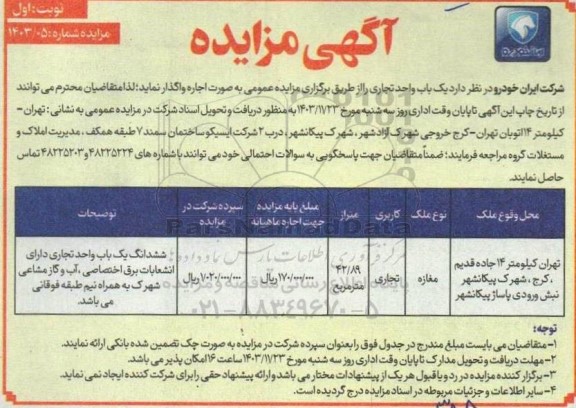 نوبت: اول
مزایده شماره: ۱۴۰۳/۰۵
آگهی مزایده
شرکت ایران خودرو در نظر دارد یک باب واحد تجاری را از طریق برگزاری مزایده عمومی به صورت اجاره واگذار نماید؛ لذا متقاضیان محترم می توانند
از تاریخ چاپ این آگهی تا پایان وقت اداری روز سه شنبه مورخ ۱۴۰۳/۱۱/۲۳ به منظور دریافت و تحویل اسناد شرکت در مزایده عمومی به نشانی : تهران -
کیلومتر ۱۴ اتوبان تهران - کرج خروجی شهرک آزادشهر ، شهرک پیکانشهر، درب ۲ شرکت ایسیکو ساختمان سمند ۷ طبقه همکف ، مدیریت املاک و
مستغلات گروه مراجعه فرمایند؛ ضمناً متقاضیان جهت پاسخگویی به سوالات احتمالی خود می توانند با شماره های ۴۸۲۲۵۲۲۴ و ۴۸۲۲۵۲۰۳ تماس
حاصل نمایند.
محل وقوع ملک نوع ملک کاربری متراژ مبلغ پایه مزایده جهت اجاره ماهیانه سپرده شرکت در مزایده توضیحات
تهران کیلومتر ۱۴ جاده قدیم ، کرج ، شهرک پیکانشهر نبش ورودی پاساژ پیکانشهر مغازه تجاری ۴۲/۸۹ مترمربع ۱۷۰/۰۰۰/۰۰۰ ریال ۱/۰۲۰/۰۰۰/۰۰۰ ریال ششدانگ یک باب واحد تجاری دارای انشعابات برق اختصاصی ، آب و گاز مشاعی شهرک به همراه نیم طبقه فوقانی می باشد.
ParsNamadData
مرکز فرآوری اطلاعات پارس نماد داده ها
۰۲۱-۸۸۳۴۹۶۷۰-۵
توجه:
۱- متقاضیان می بایست مبلغ مندرج در جدول فوق را بعنوان سپرده شرکت در مزایده به صورت چک تضمین شده بانکی ارائه نمایند.
۲- مهلت دریافت و تحویل مدارک تا پایان وقت اداری روز سه شنبه مورخ ۱۴۰۳/۱۱/۲۳ ساعت ۱۶ امکان پذیر می باشد.
۳- برگزار کننده مزایده در رد و یا قبول هر یک از پیشنهادات مختار می باشد و ارائه پیشنهاد حقی را برای شرکت کننده ایجاد نمی نماید.
۴- سایر اطلاعات و جزئیات مربوطه در اسناد مزایده درج گردیده است.